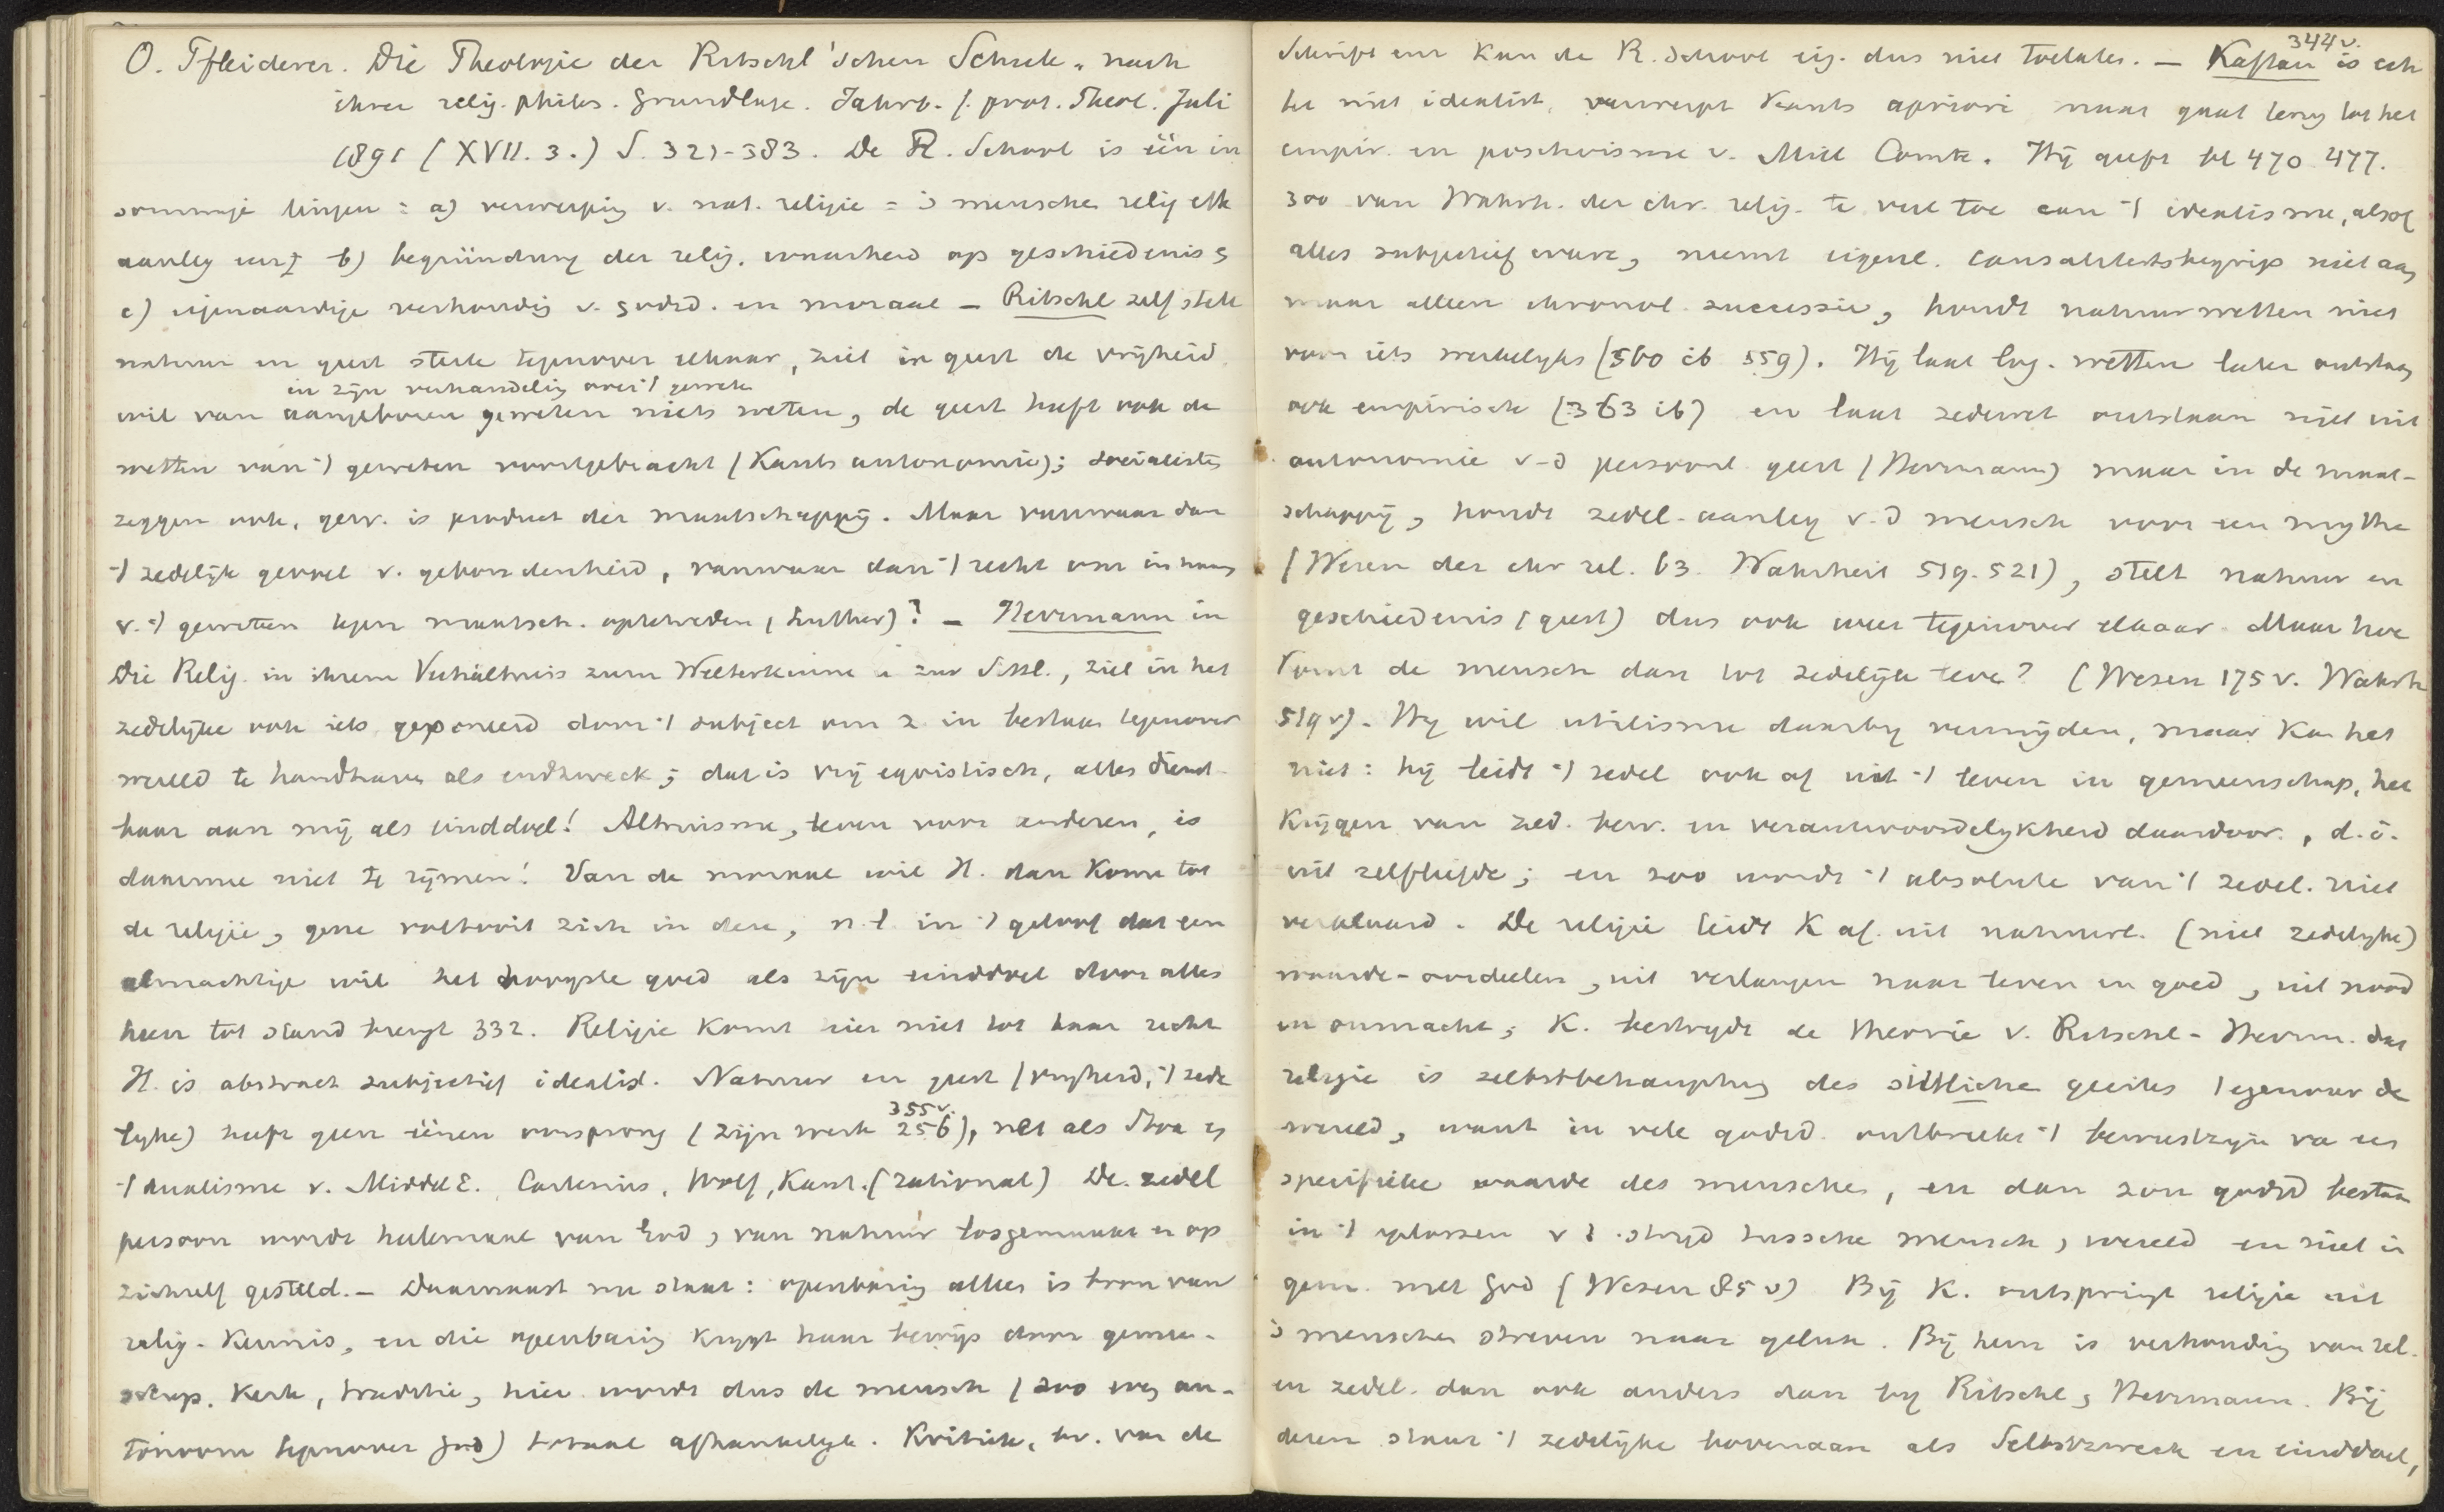 O. Pfleiderer. Die Theologie der Ritschl'schen Schule, nach
ihrer relig. philos. Grundlage. Jahrb. f. prot. Theol. Juli
1891 (XVII. 3.) S. 321-383. De R. School is één in
sommige dingen: a) verwerping v. nat. religie = 's menschen relig.
aanleg b) begründung der relig. waarheid op geschiedenis
c) eigenaardige verhouding v. godsd. en moraal – Ritschl zelf stelt
natuur en geest sterk tegenover elkaar, ziet in geest de vrijheid
in zijn verhandeling over 't geweten
wil van aangeboren geweten niets weten, de geest heeft ook de
wetten van 't geweten voortgebracht (Kants autonomie); socialisten
zeggen ook, gew. is product der maatschappij. Maar vanwaar dan
't zedelijk gevoel v. gebondenheid, vanwaar dan 't recht om in naam
v. 't geweten tegen maatsch. op te treden (Luther)? – Herrmann in
Die Relig. in ihrem Verhältniss zum Welterkennen u zur Sittl., ziet in het
zedelijke ook iets geponeerd door 't subject om z. in bestaan tegenover
wereld te handhaven als endzweck; dat is vrij egoistisch, alles dient
haar aan mij als einddoel! Altruisme, leven voor anderen, is
daarmee niet te rijmen! Van de moraal wil H. dan komen tot
de religie, gene voltooit zich in deze, n.l. in 't geloof dat een
almachtige wil het hoogste goed als zijn einddoel door alles
heen tot stand brengt 332. Religie komt hier niet tot haar recht
H. is abstract subjectief idealist. Natuur en geest (vrijheid, 't zede
355 v.
lijke) heeft geen éénen oorsprong (zijn werk 256), net als Stoa en
't dualisme v. Middel E. Cartesius, Wolf, Kant. (rational) De zedel
persoon wordt helemaal van God, van natuur losgemaakt en op
zichzelf gesteld. – Daarnaast nu staat: openbaring alleen is bron van
relig. kennis, en die openbaring krijgt haar bewijs door gemeen-
schap. Kerk, traditie, hier wordt dus de mensch (zoo au-
tonoom tegenover God) totaal afhankelijk. Kritiek, bv. van de
344 v.
Schrift enz kan de R. School eig. dus niet toelaten. – Kaftan is ech
ter niet idealist, verwerpt Kants apriori maar gaat terug tot het
empir. en positivisme v. Mill Comte. Hij geeft bl 470. 477.
300 van Wahrh. der chr. relig. te veel toe aan 't idealisme, alsof
alles subjectief ware, neemt eigenl. causaliteitsbegrip niet aan
maar alleen chronol. successie, houdt natuurwetten niet
voor iets werkelijks (560 ib 559). Hij laat log. wetten later ontstaan
ook empirisch (363 ib) en laat zedewet ontstaan niet uit
autonomie v-d persoonl. geest (Herrmann) maar in de maat-
schappij, houdt zedel. aanleg v.d mensch voor een mythe
(Wesen der chr rel. 63. Wahrheit 519. 521), stelt natuur en
geschiedenis (geest) dus ook weer tegenover elkaar. Maar hoe
komt de mensch dan tot zedelijk leven? (Wesen 175 v. Wahrh
519 v). Hij wil utilisme daarbij vermijden, maar kan het
niet: hij leidt 't zedel ook af uit 't leven in gemeenschap, het
krijgen van zed. bew. en verantwoordelijkheid daardoor, d.i.
uit zelfliefde; en zoo wordt 't absolute van 't zedel. niet
verklaard. De religie leidt K af uit natuurl. (niet zedelijke)
waarde-oordeelen, uit verlangen naar leven en goed, uit nood
en onmacht; K. bestrijdt de theorie v. Ritschl-Herrm. dat
religie is selbstbehauptung des sittliche geistes tegenover de
wereld, want in vele godsd. ontbreekt 't bewustzijn van een
specifieke waarde des menschen, en dan zou godsd bestaan
in 't oplossen v 't strijd tusschen mensch, wereld en niet in
gem. met God (Wesen 85 v) Bij K. ontspringt religie uit
's menschen streven naar geluk. Bij hem is verhouding van rel.
en zedel. dan ook anders dan bij Ritschl, Herrmann. Bij
dezen staat 't zedelijke bovenaan als Selbstzweck en einddoel,